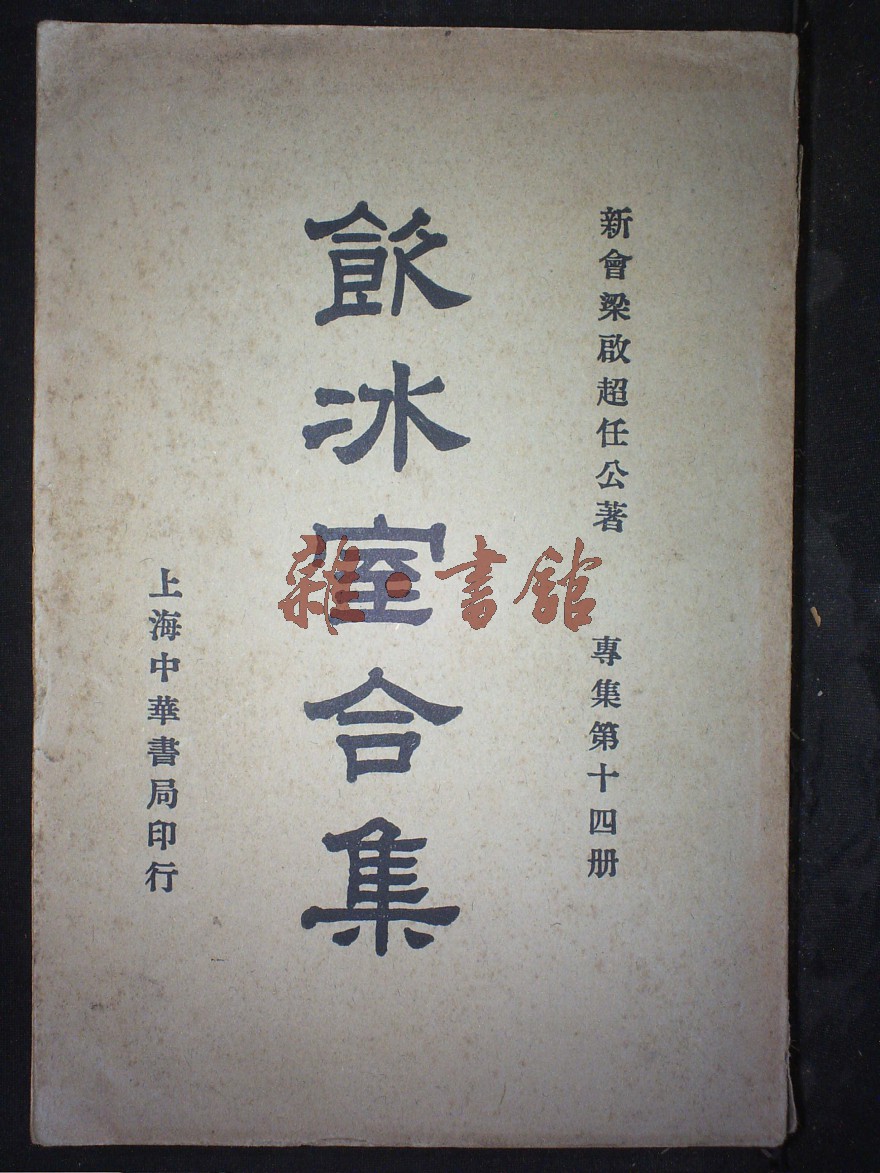 新會梁啟超任公著
專集第十四册
飲冰室合集
上海中華書局印行
雜·書館